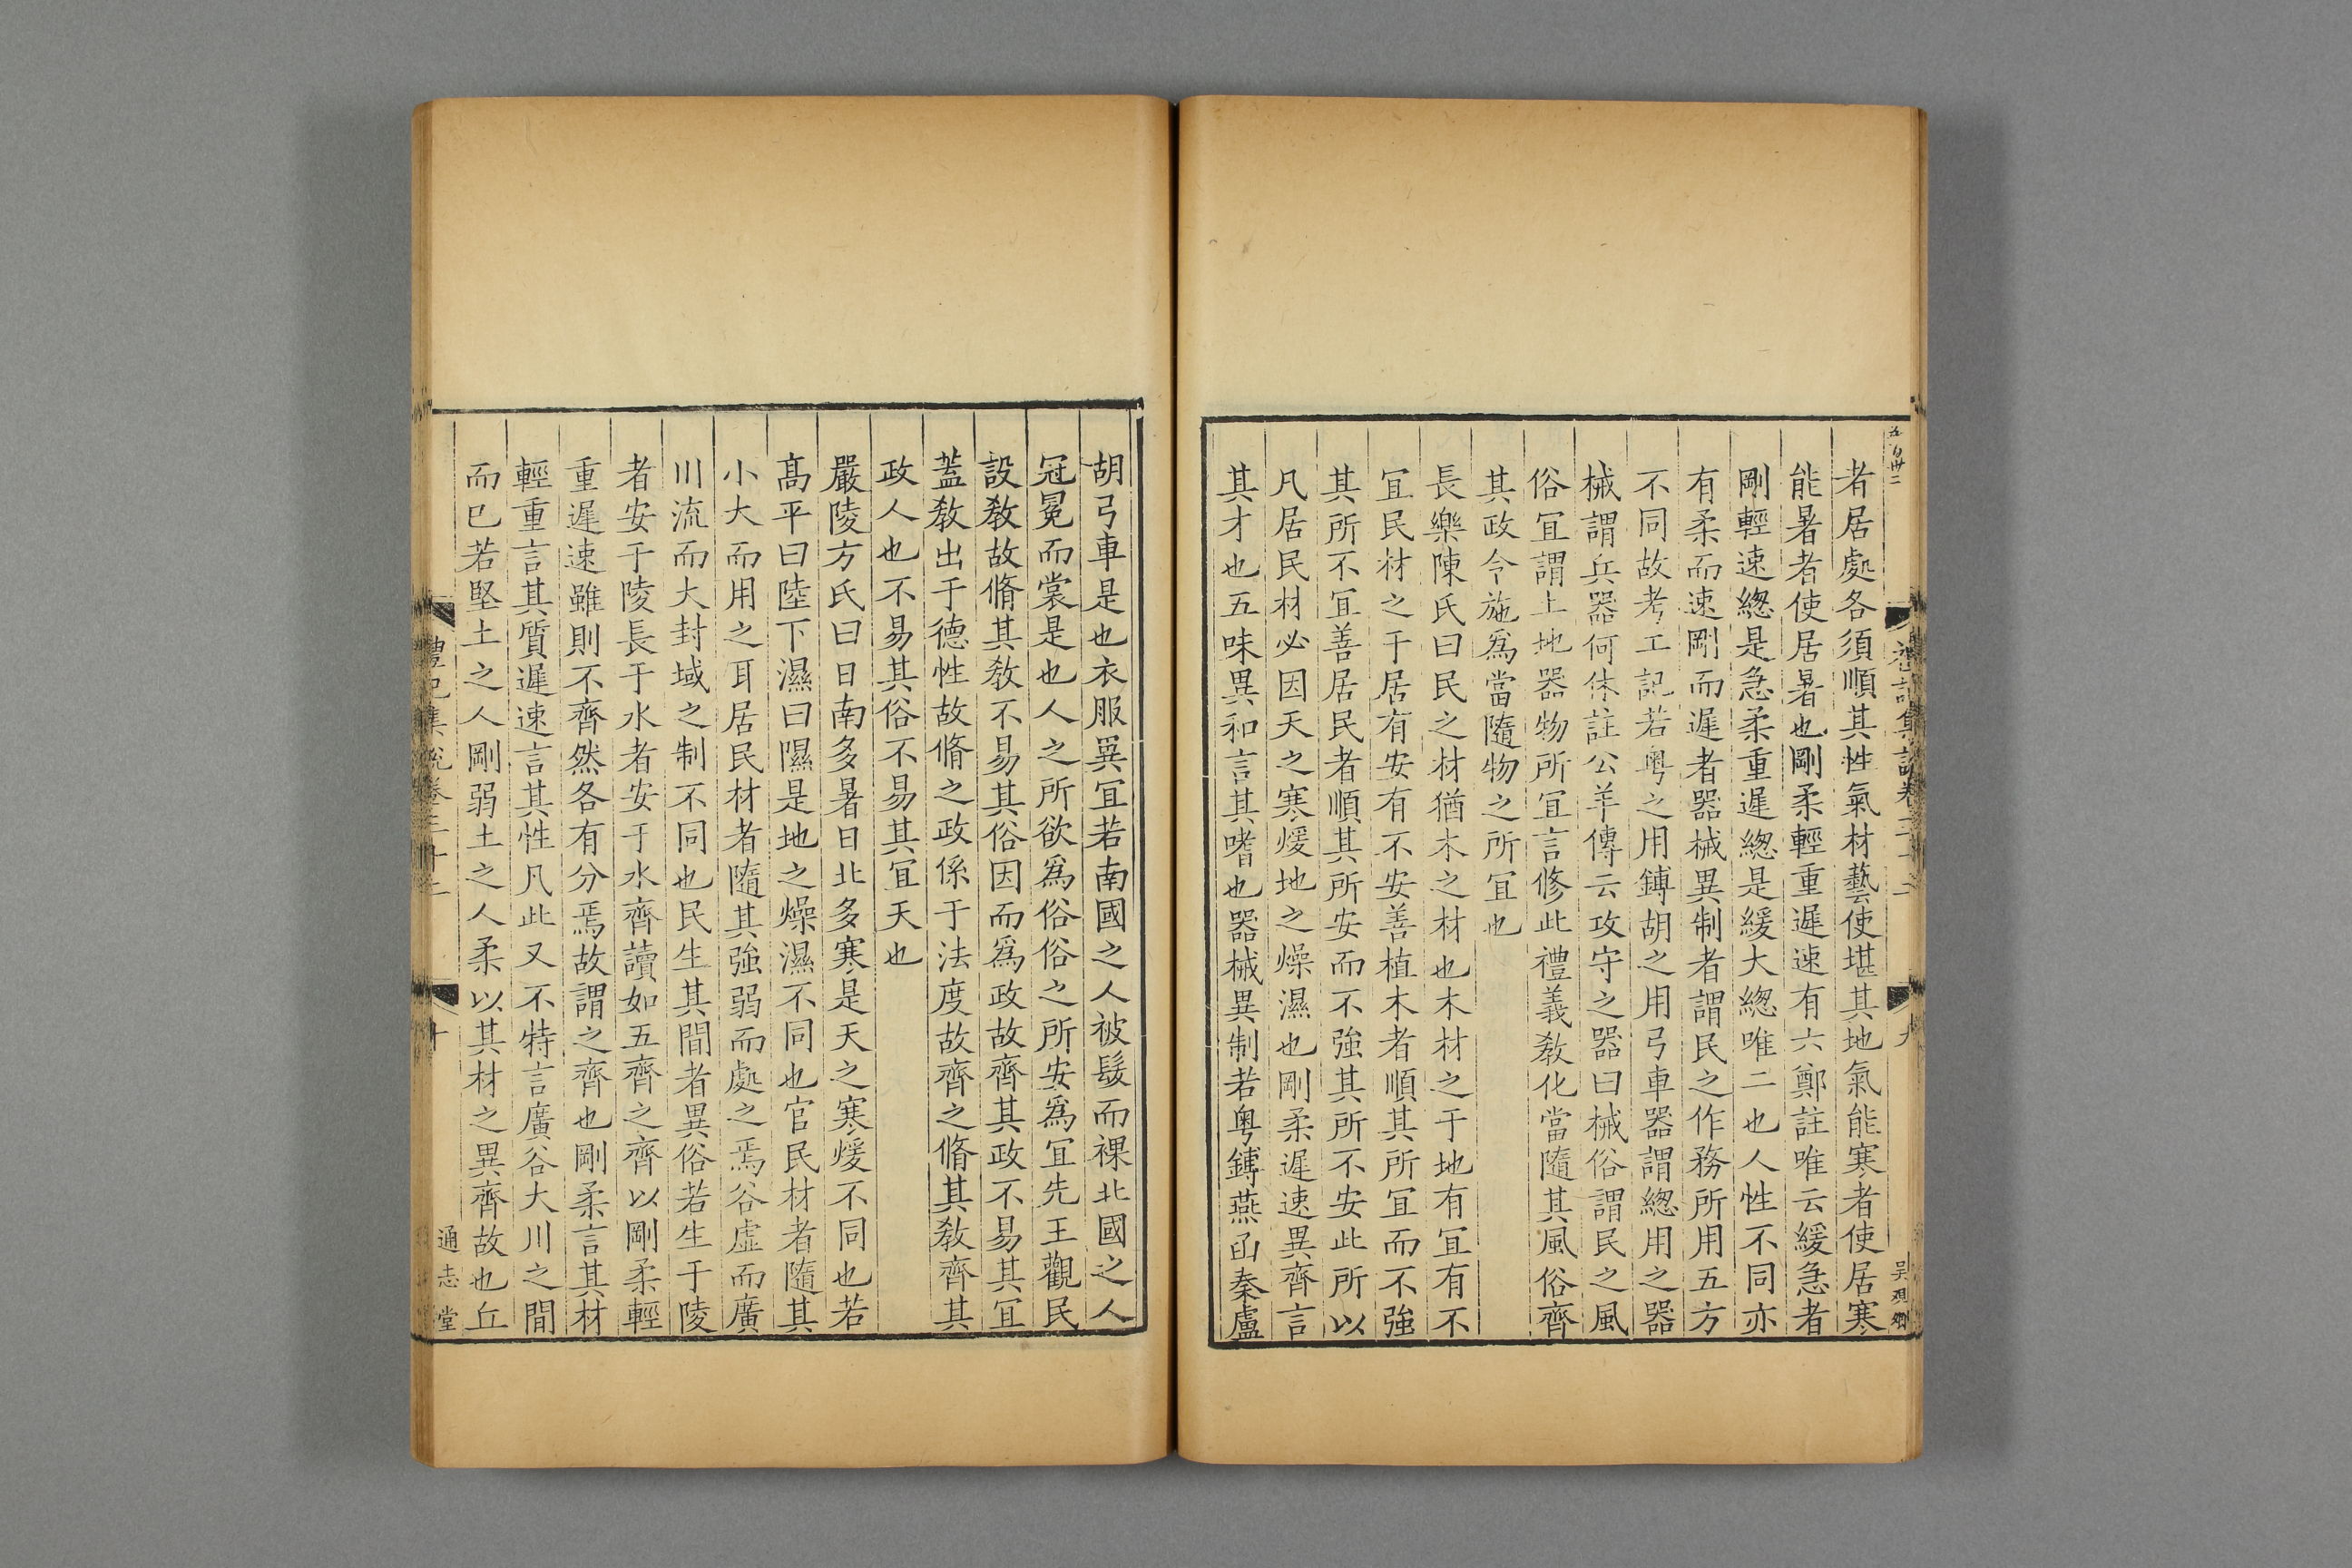 者居處各須順其性氣材藝使堪其地氣能寒者使居寒
能暑者使居暑也剛柔輕重遲速有六鄭註唯云緩急者
剛輕速緫是急柔重遲緫是緩大緫唯二也人性不同亦
有柔而速剛而遲者器械異制者謂民之作務所用五方
不同故考工記若粵之用鎛胡之用弓車器謂緫用之器
械謂兵器何休註公羊傳云攻守之器曰械俗謂民之風
俗宜謂土地器物所宜言修此禮義敎化當隨其風俗齊
其政令施爲當隨物之所宜也
長樂陳氏曰民之材猶木之材也木材之于地有宜有不
宜民材之于居有安有不安善植木者順其所宜而不強
其所不宜善居民者順其所安而不強其所不安此所以
凡居民材必因天之寒煖地之燥濕也剛柔遲速異齊言
其才也五味異和言其嗜也器械異制若粵鎛燕函秦盧
禮記集說卷三十二
九
胡弓車是也衣服異宜若南國之人被髮而裸北國之人
冠冕而裳是也人之所欲爲俗俗之所安爲宜先王觀民
設敎故脩其敎不易其俗因而爲政故齊其政不易其宜
蓋敎出于德性故脩之政係于法度故齊之脩其敎齊其
政人也不易其俗不易其宜天也
嚴陵方氏曰日南多暑日北多寒是天之寒煖不同也若
髙平曰陸下濕曰隰是地之燥濕不同也官民材者隨其
小大而用之耳居民材者隨其強弱而處之焉谷虛而廣
川流而大封域之制不同也民生其間者異俗若生于陵
者安于陵長于水者安于水齊讀如五齊之齊以剛柔輕
重遲速雖則不齊然各有分焉故謂之齊也剛柔言其材
輕重言其質遲速言其性凡此又不特言廣谷大川之間
而已若堅土之人剛弱土之人柔以其材之異齊故也丘
禮記集說卷三十二
十
通志堂